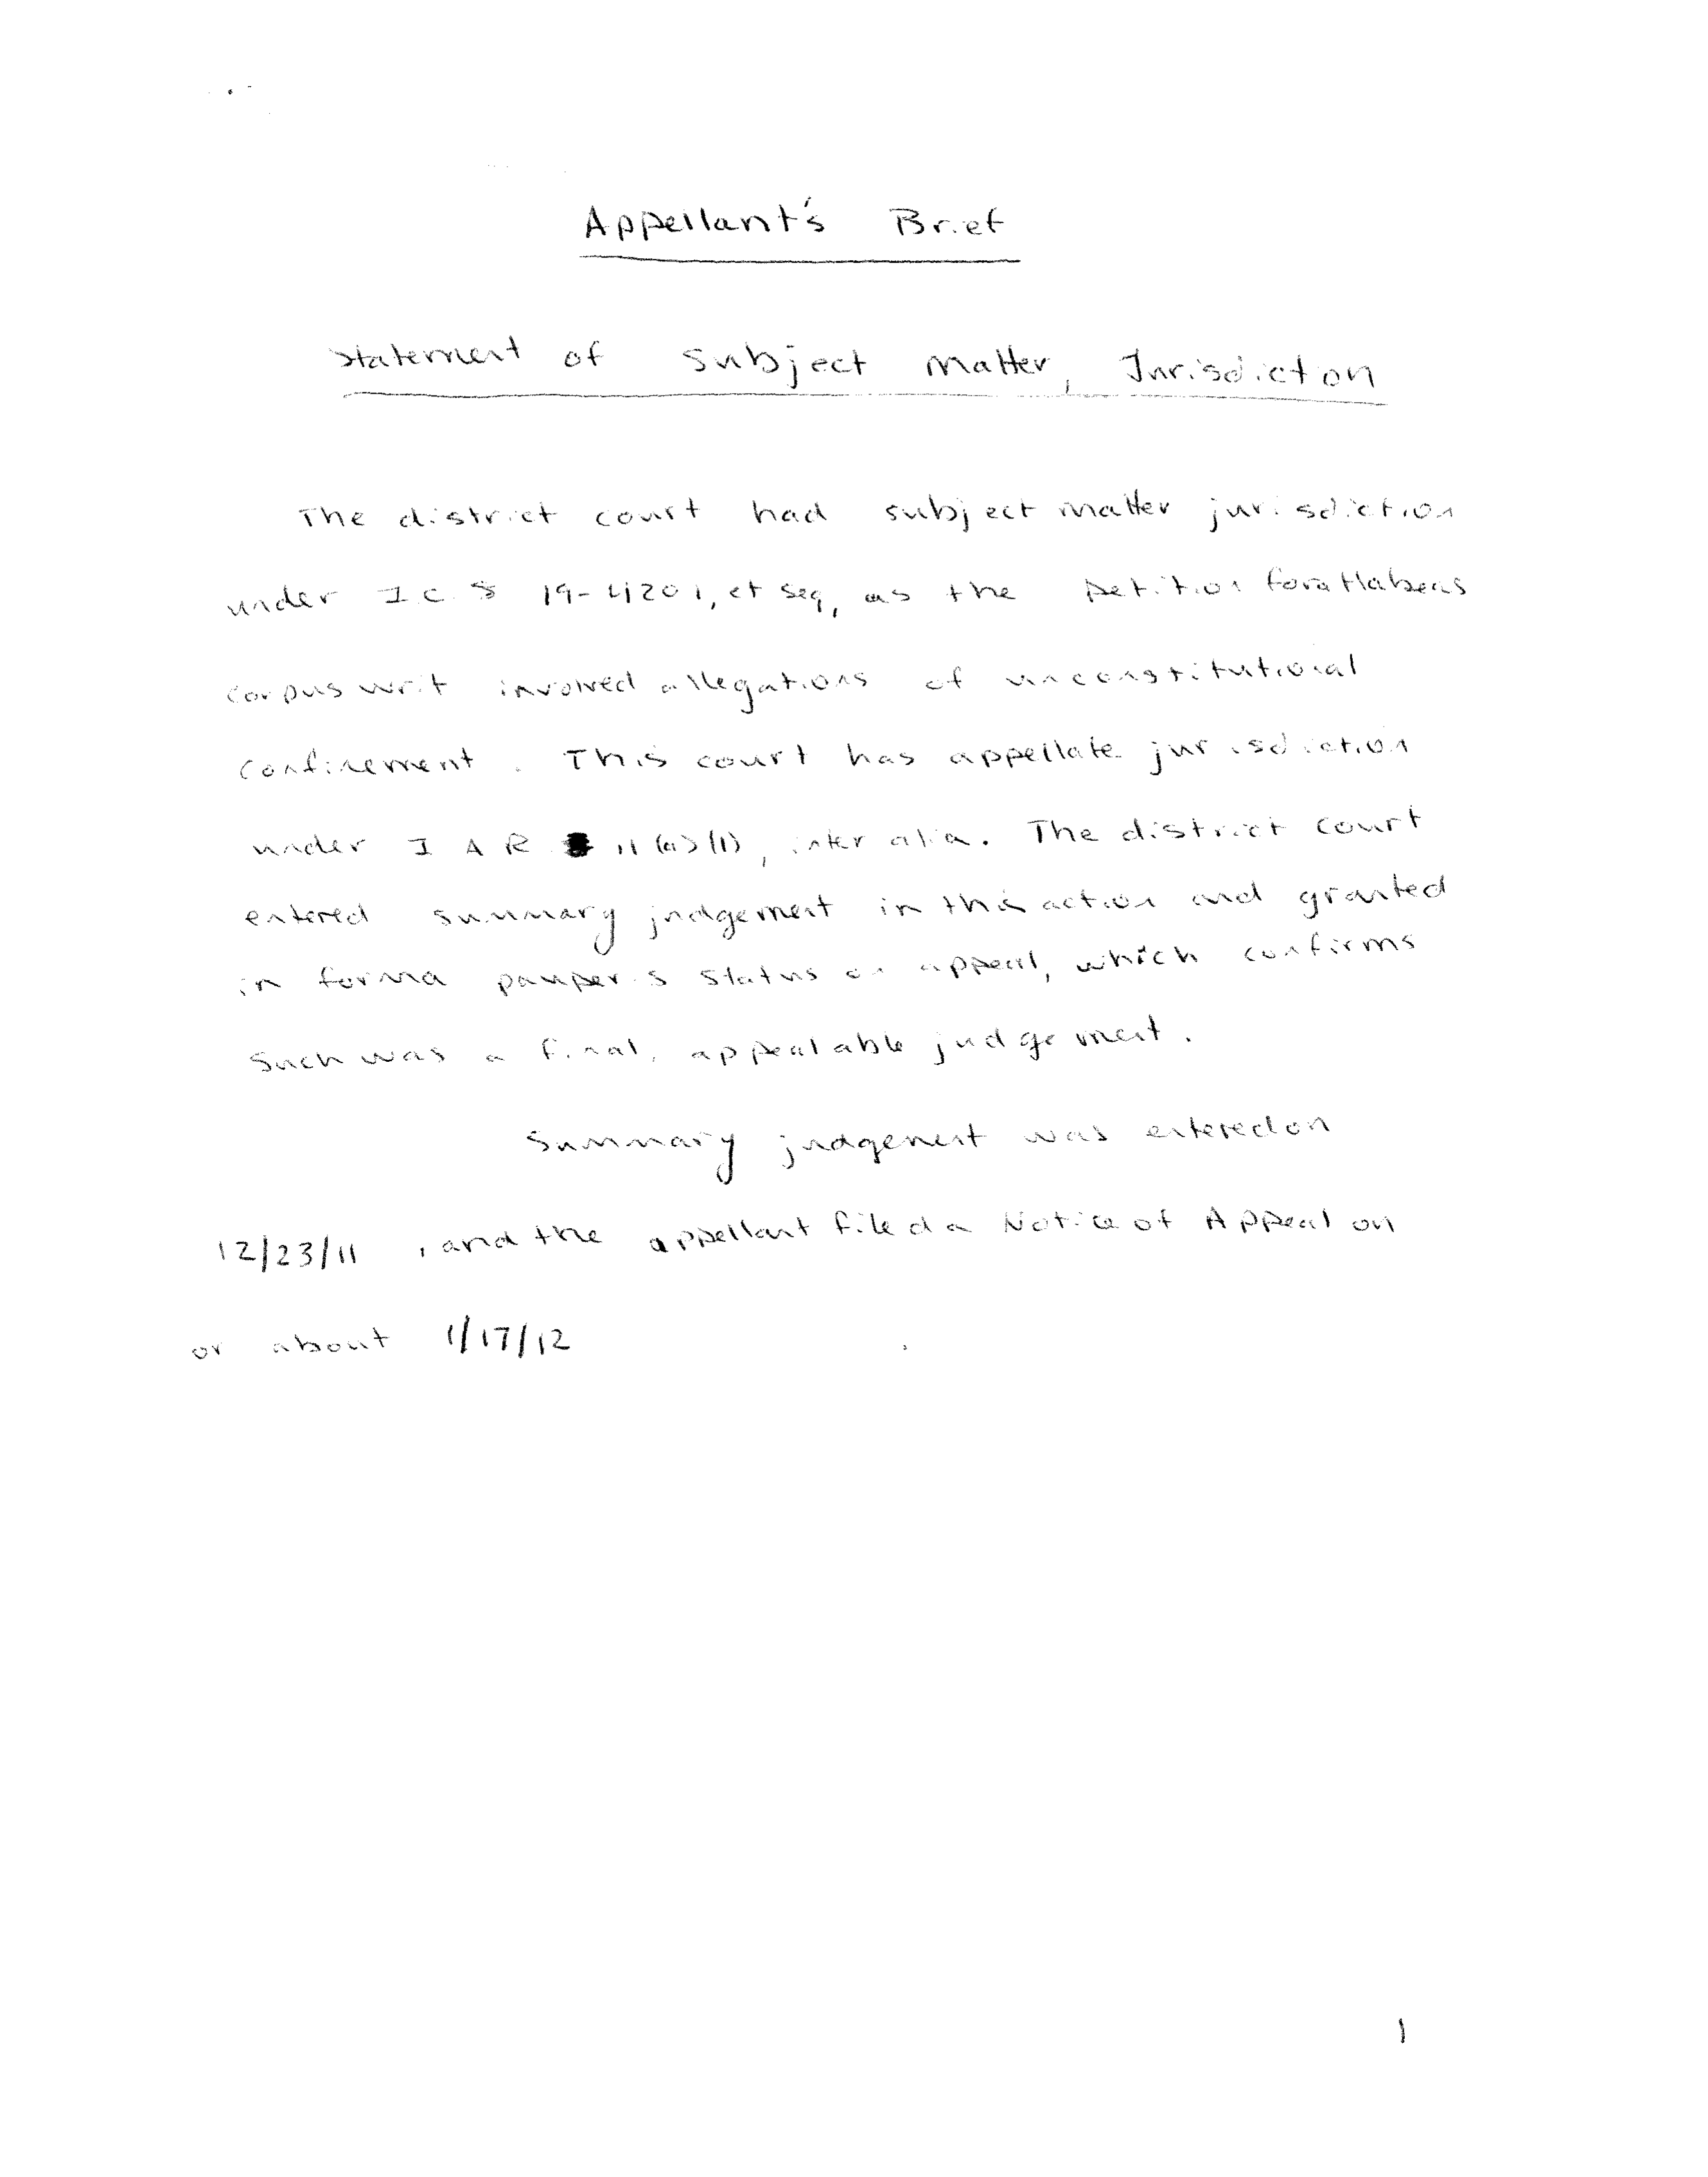 Appellant's Brief
Statement of Subject Matter, Jurisdiction
The district court had subject matter jurisdiction
under I C § 19-4201, et seq, as the petition for a Habeas
corpus writ involved allegations of unconstitutional
confinement. This court has appellate jurisdiction
under I A R 11(a)(1), inter alia. The district court
entered summary judgement in this action and granted
in forma pauperis status on appeal, which confirms
such was a final, appealable judgement.
Summary judgement was entered on
12/23/11, and the appellant filed a Notice of Appeal on
or about 1/17/12
1